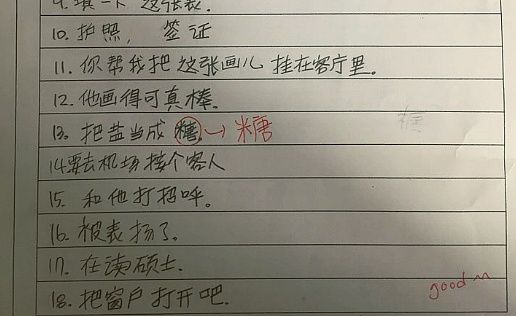 9. 填一下 这张表.
10. 护照, 签证
11. 你帮我把这张画儿 挂在客厅里.
12. 他画得可真棒.
13. 把盐当成 糖 → 糖
14. 要去机场接个客人
15. 和他打招呼.
16. 被表扬了.
17. 在读硕士.
18. 把窗户打开吧.
good